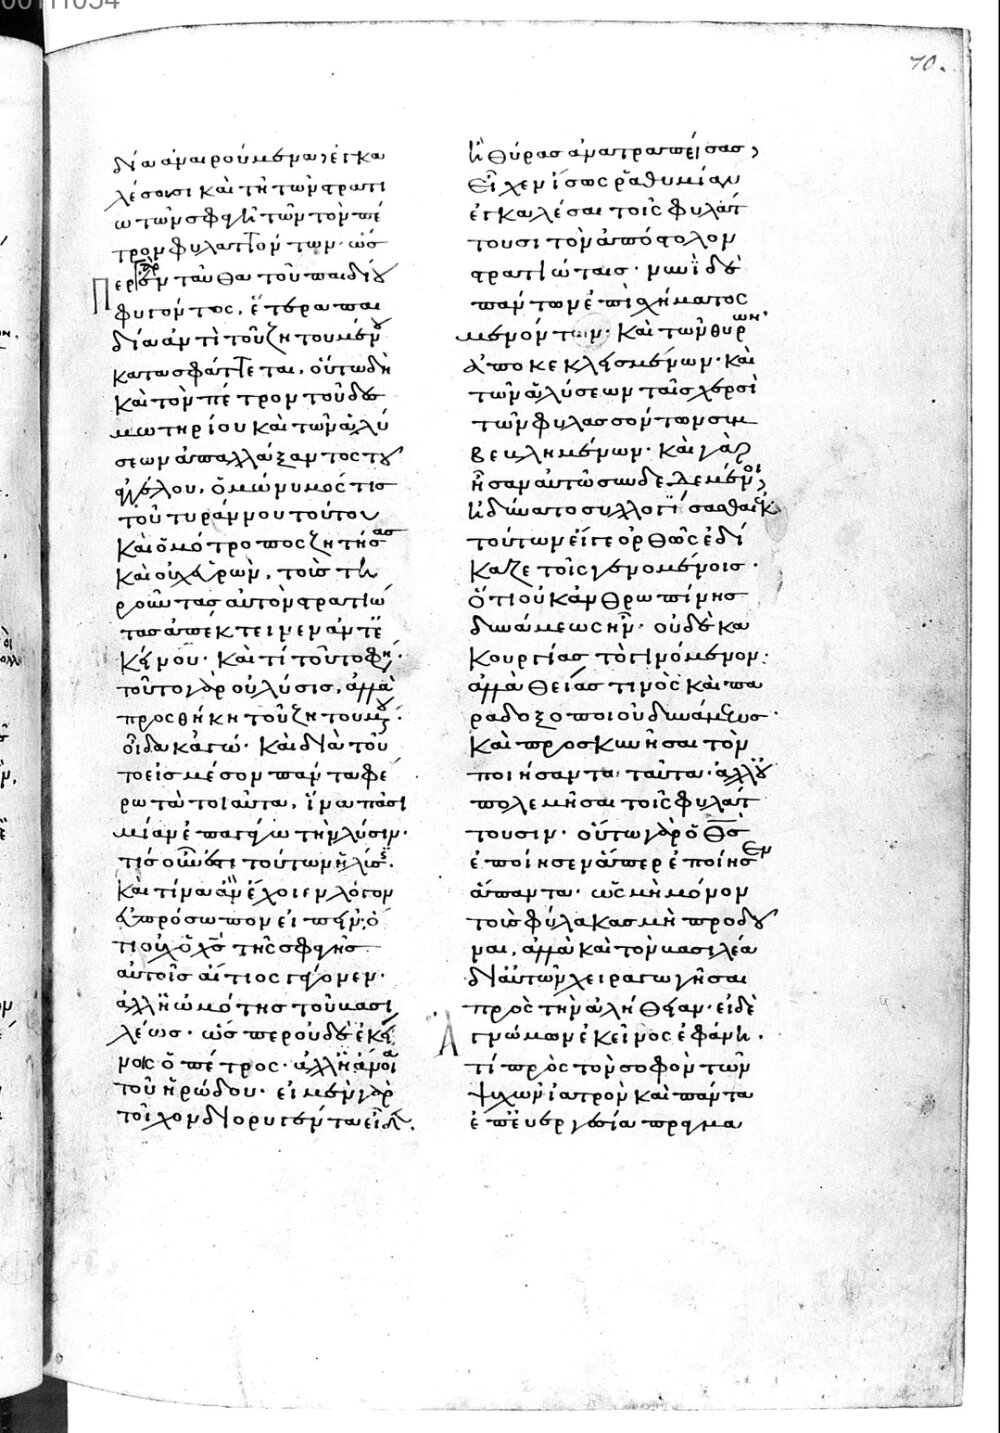 70.
δία ἀναιρούμενα ἐγκα
λέσουσι καὶ τὴν τῶν στρατι
ωτῶν σφαγὴν τῶν τὸν πέ
τρον φυλαττόντων. ὥσ
περ γὰρ ἐνταῦθα τοῦ παιδίου
φυγόντος, ἕτερα παι
δία ἀντὶ τοῦ ζητουμένου
κατασφάττεται, οὕτω δὴ
καὶ τὸν πέτρον τοῦ δεσ
μωτηρίου καὶ τῶν ἁλύ
σεων ἀπαλλάξαντος τοῦ
ἀγγέλου, ὁμώνυμός τις
τοῦ τυράννου τούτου
καὶ ὁμότροπος ζητήσας
καὶ οὐχ εὑρὼν, τοὺς τη
ροῦντας αὐτὸν στρατιώ
τας ἀπέκτεινεν ἀντ' ἐ
κείνου. καὶ τί τοῦτο φησι.
τοῦτο γὰρ οὐ λύσις, ἀλλὰ
προσθήκη τοῦ ζητουμένου.
οἶδα κἀγώ. καὶ διὰ τοῦ
το εἰς μέσον πάντα φέ
ρω τὰ τοιαῦτα, ἵνα πᾶσι
μίαν ἐπαγάγω τὴν λύσιν.
τίς οὖν ἐστι τούτων ἡ λύσις.
καὶ τίνα ἂν ἔχοιεν λόγον
εὐπρόσωπον εἰπεῖν; ὅ
τι οὐχ ὁ χς τῆς σφαγῆς
αὐτοῖς αἴτιος γέγονεν.
ἀλλ' ἡ ὠμότης τοῦ βασι
λέως. ὥσπερ οὐδὲ ἐκεί
νοις ὁ πέτρος. ἀλλ' ἡ ἄνοια
τοῦ ἡρώδου. εἰ μὲν γὰρ
τοῖχον διορυγέντα εἶδεν.
ἢ θύρας ἀνατραπείσας,
εἶχεν ἴσως ῥαθυμίαν
ἐγκαλέσαι τοῖς φυλάτ
τουσι τὸν ἀπόστολον
στρατιώταις. νυνὶ δὲ
πάντων ἐπὶ σχήματος
μενόντων. καὶ τῶν θυρῶν
ἀποκεκλεισμένων. καὶ
τῶν ἁλύσεων ταῖς χερσὶ
τῶν φυλασσόντων συμ
βεβλημένων. καὶ γὰρ
ἦσαν αὐτῶ συνδεδεμένοι,
ἠδύνατο συλλογίσασθαι ἐκ
τούτων εἴγε ὀρθῶς ἐδί
καζε τοῖς γενομένοις.
ὅτι οὐκ ἀνθρωπίνης
δυνάμεως ἦν. οὐδὲ κα
κουργίας τὸ γινόμενον.
ἀλλὰ θείας τινὸς καὶ πα
ραδοξοποιοῦ δυνάμεως.
καὶ προσκυνῆσαι τὸν
ποιήσαντα ταῦτα. ἀλλ' οὐ
πολεμῆσαι τοῖς φυλάτ
τουσιν. οὕτω γὰρ ὁ θς
ἐποίησεν ἅπερ ἐποίησεν
ἅπαντα. ὡς μὴ μόνον
τοὺς φύλακας μὴ προδοῦ
ναι, ἀλλὰ καὶ τὸν βασιλέα
δι' αὐτῶν χειραγωγῆσαι
πρὸς τὴν ἀλήθειαν. εἰ δὲ
ἀγνώμων ἐκεῖνος ἐφάνη.
τί πρὸς τὸν σοφὸν τῶν
ψυχῶν ἰατρὸν καὶ πάντα
ἐπ' εὐεργεσία πραγμα